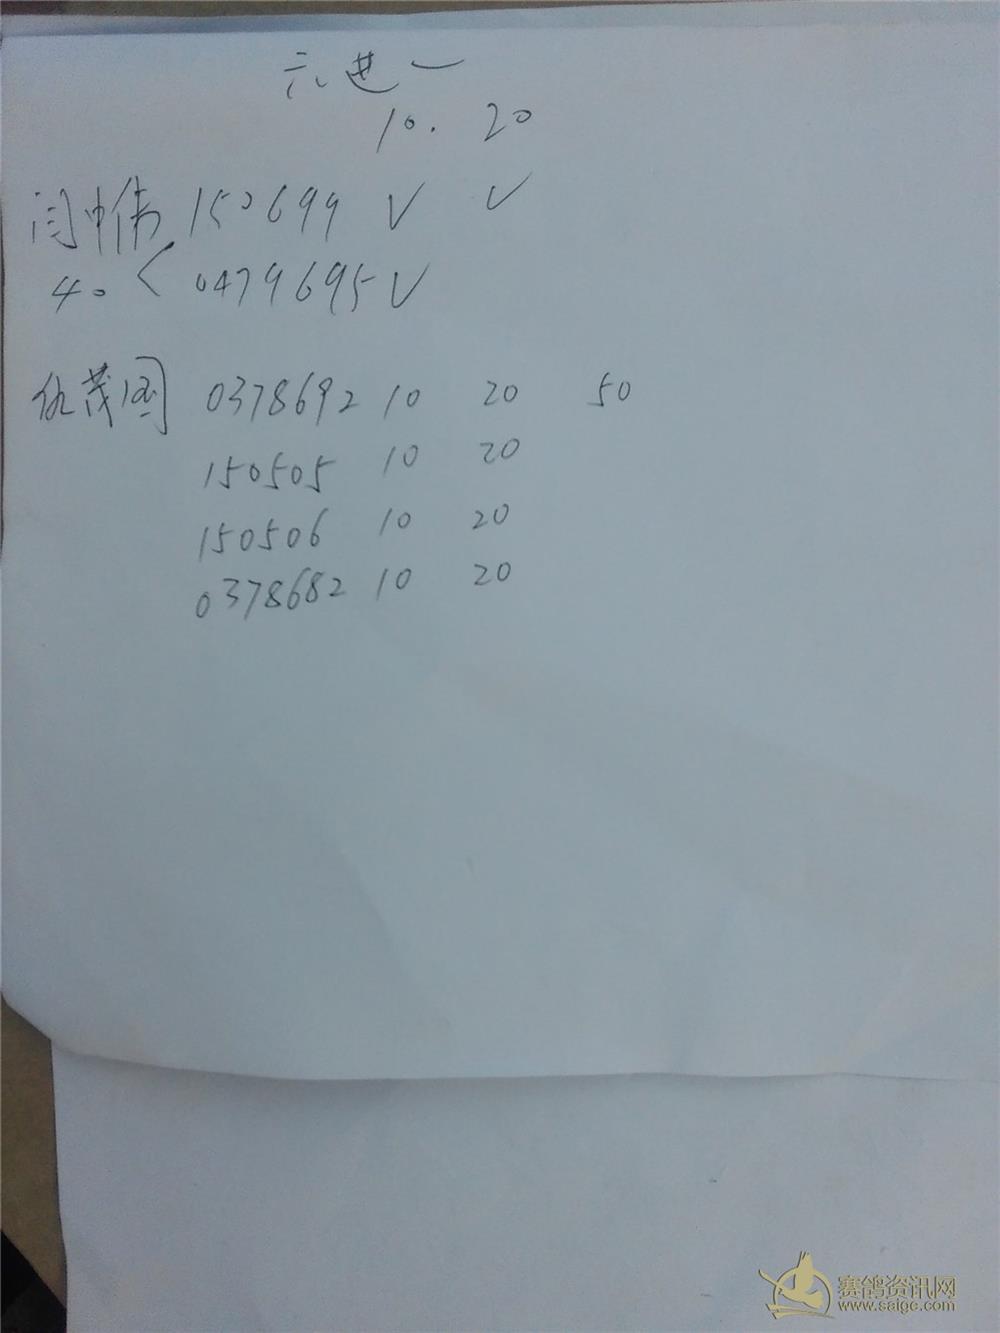 六进一
10. 20
闫中伟 150699 V V
40 < 0479695 V
仇茂国 0378692 10 20 50
150505 10 20
150506 10 20
0378682 10 20
赛鸽资讯网
www.saigc.com